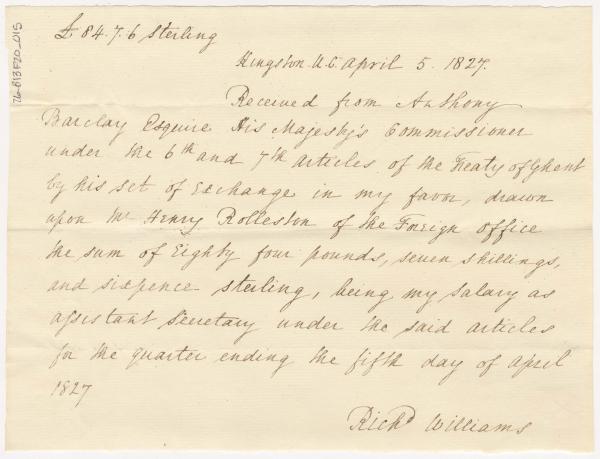 £ 84.7.6 Sterling
Kingston U.C. April 5. 1827.
Received from Anthony
Barclay Esquire His Majesty's Commissioner
under the 6th and 7th articles of the Treaty of Ghent
by his set of Exchange in my favor, drawn
upon Mr Henry Rolleston of the Foreign Office
the sum of Eighty four pounds, seven shillings,
and sixpence sterling, being my salary as
assistant Secretary under the said articles
for the quarter ending the fifth day of April
1827
Richd Williams
76-B13F20_015